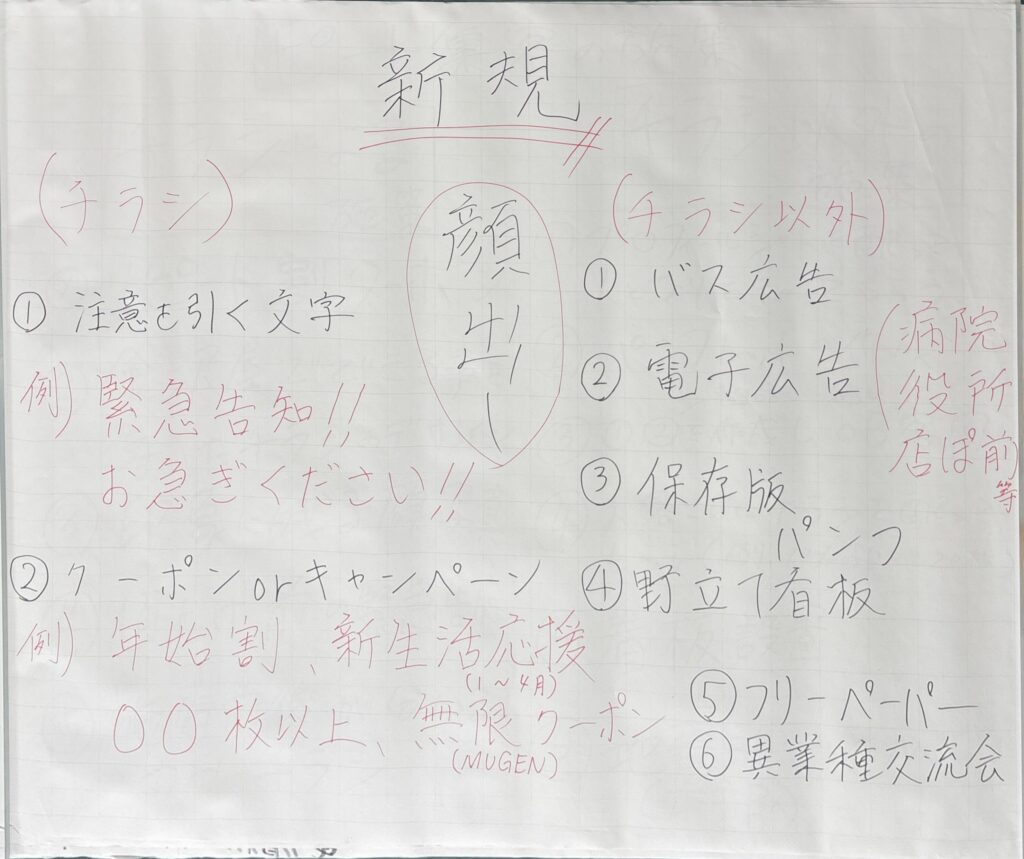 新規
顔出し
(チラシ)
① 注意を引く文字
例) 緊急告知!!
お急ぎください!!
② クーポンorキャンペーン
例) 年始割、新生活応援
(1~4月)
〇〇枚以上、無限クーポン
(MUGEN)
(チラシ以外)
① バス広告
② 電子広告
(病院
役所
店ぽ前
等
③ 保存版
パンフ
④ 野立て看板
⑤ フリーペーパー
⑥ 異業種交流会